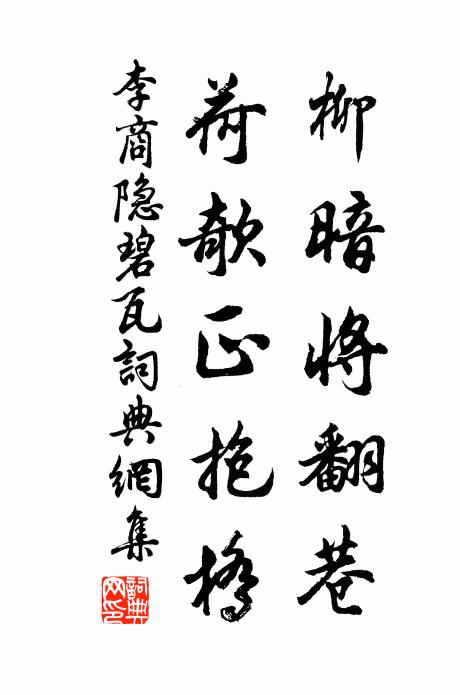 柳暗将翻巷
荷欹正抱橋
李商隐碧瓦詞典網集
詞典网印